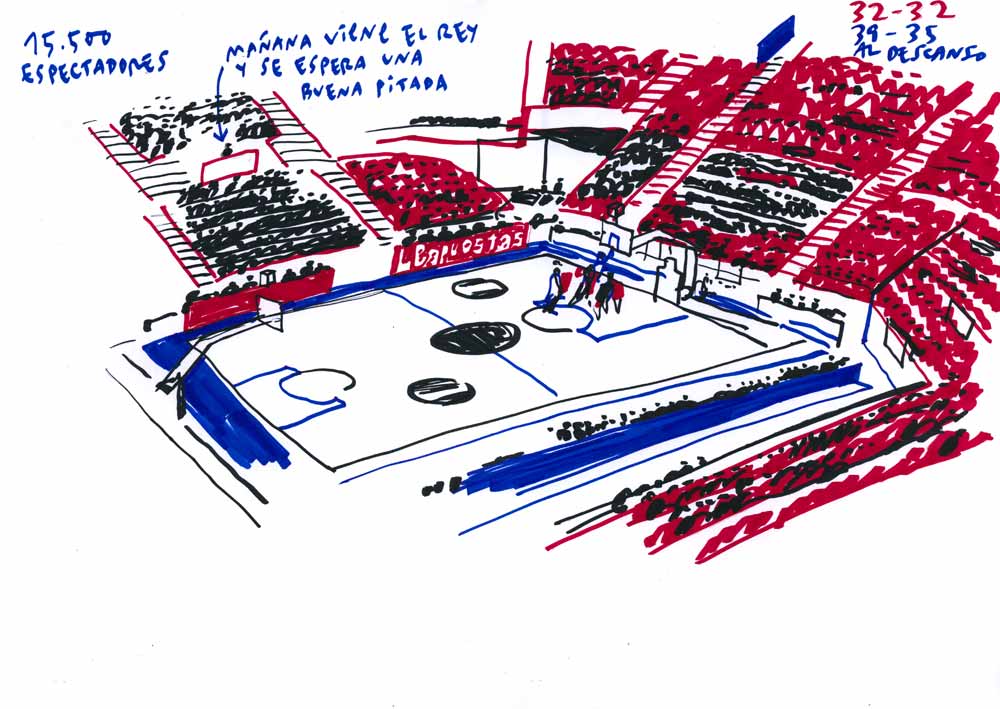 15.500
ESPECTADORES
MAÑANA VIENE EL REY
Y SE ESPERA UNA
BUENA PITADA
32-32
39-35
AL DESCANSO